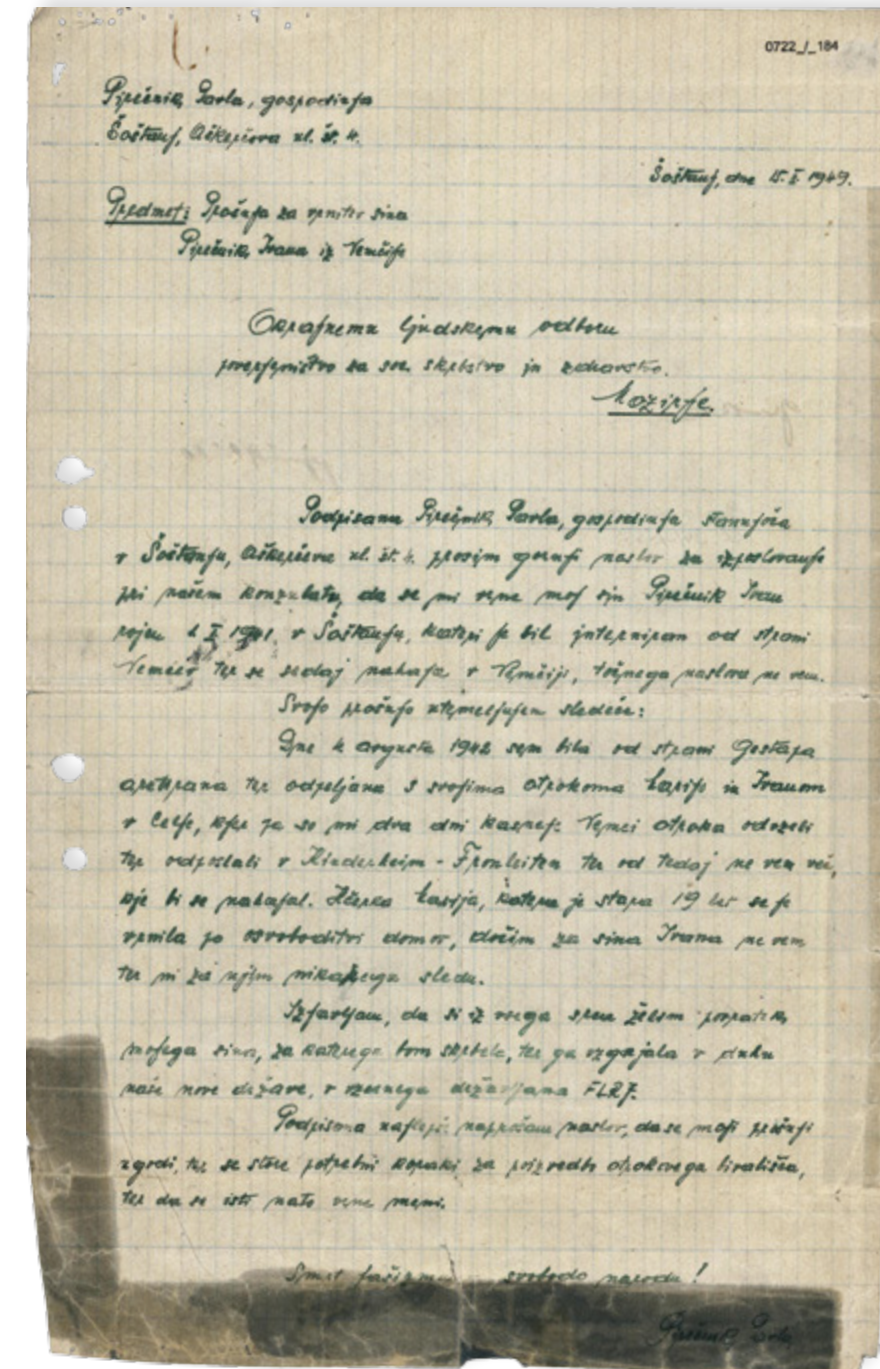 0722_/_184
Pirečnik Pavla, gospodinja
Šoštanj, Aškerčeva ul. št. 4.
Šoštanj, dne 15.I 1949.
Predmet: Prošnja za vrnitev sina
Pirečnik Ivana iz Nemčije
Okrajnemu ljudskemu odboru
poverjeništvo za soc. skrbstvo in zdravstvo.
Mozirje.
Podpisana Pirečnik Pavla, gospodinja stanujoča
v Šoštanju, Aškerčeva ul. št. 4. prosim gornji naslov za izposlovanje
pri našem konzulatu, da se mi vrne moj sin Pirečnik Ivan
rojen I 1941. v Šoštanju, kateri je bil interniran od strani
Nemcev ter se sedaj nahaja v Nemčiji, točnega naslova ne vem.
Svojo prošnjo utemeljujem sledeče:
Dne 4 avgusta 1942 sem bila od strani Gestapa
aretirana ter odpeljana s svojima otrokoma Marijo in Ivanom
v Celje, kjer so mi dva dni kasneje Nemci otroka odvzeli
ter odposlali v Kinderheim - Fronleiten ter od tedaj ne vem več,
kje bi se nahajal. Hčerka Marija, katera je stara 19 let se je
vrnila po osvoboditvi domov, dočim za sina Ivana ne vem
ter ni za njim nikakega sledu.
Izjavljam, da si iz vsega srca želim povratek
mojega sina, za katerega bom skrbela, ter ga vzgajala v duhu
naše nove države, v vzornega državljana FLRJ.
Podpisana najlepše naprošam naslov, da se moji prošnji
ugodi, ter se store potrebni koraki za poizvedbo otrokovega bivališča,
ter da se isti nato vrne meni.
Smrt fašizmu svoboda narodu!
Pirečnik Pavla